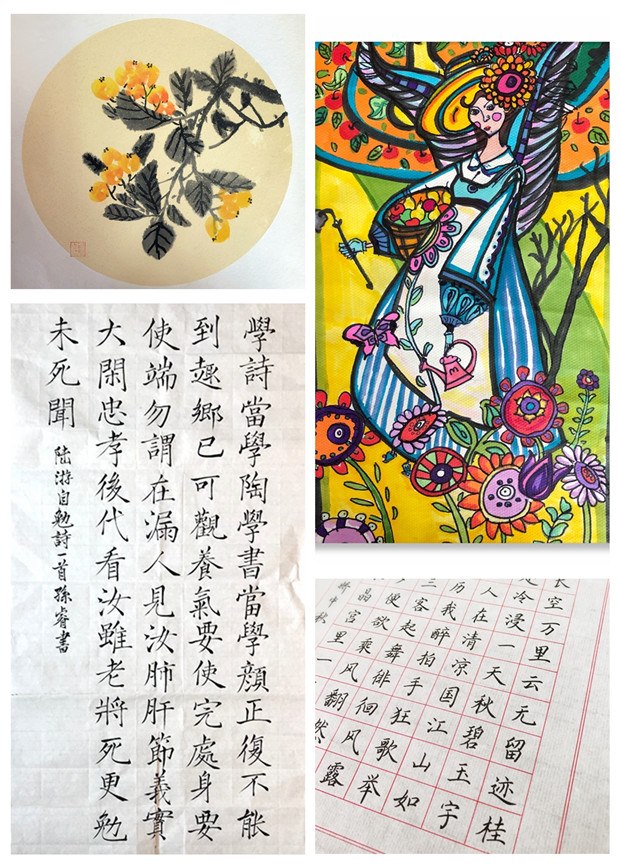 學詩當學陶學書當學顔正復不能
到趣鄉已可觀養氣要使完處身要
使端勿謂在漏人見汝肺肝節義實
大閑忠孝後代看汝雖老將死更勉
未死聞
陸游自勉詩一首孫睿書
长空万里云无留迹桂
冷浸一天秋碧玉宇
在清凉国江山如
历我醉拍手狂歌举
三客起舞徘徊风露
便欲乘风翻然
晶宫里一
中秋